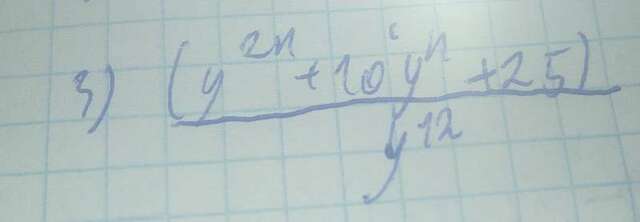 3) (y^{2n} + 10 y^n + 25) / y^{12}